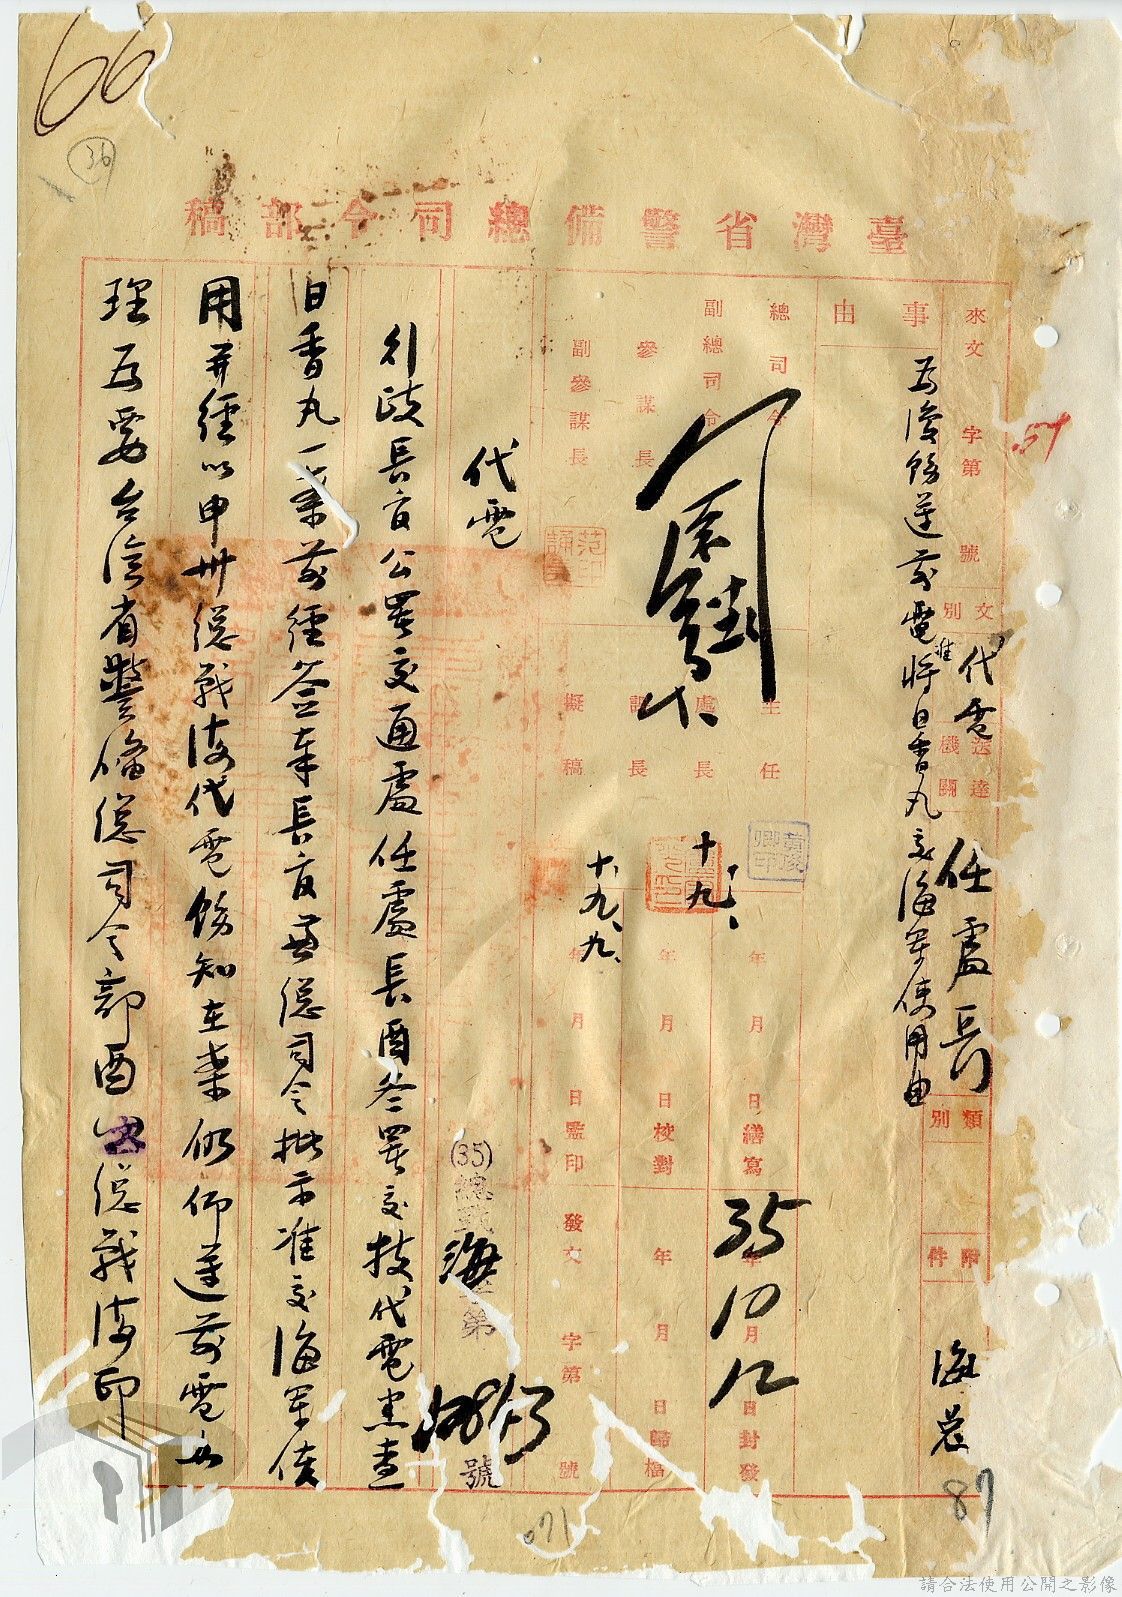 66
36
臺灣省警備總司令部稿
來文 字第 號
57
文別 代電
送達機關 任處長
類別
附件
海忠
事由
為復飭遵前電准將日香丸交海軍使用由
總司令
副總司令
參謀長
副參謀長
主任
處長
課長
擬稿
十、
十、九、
十、九、九、
年 月 日繕寫
年 月 日校對
年 月 日監印
35年10月12日封發
年 月 日歸檔
發文 字第 號
代電
(35)總戰海字第 號
行政長官公署交通處任處長酉冬署交技代電悉查
日香丸一案前經簽奉長官兼總司令批示准交海軍使
用并經以申卅總戰海代電飭知在案仍仰遵前電辦
理為要台灣省警備總司令部酉 總戰海印
87
071
請合法使用公開之影像